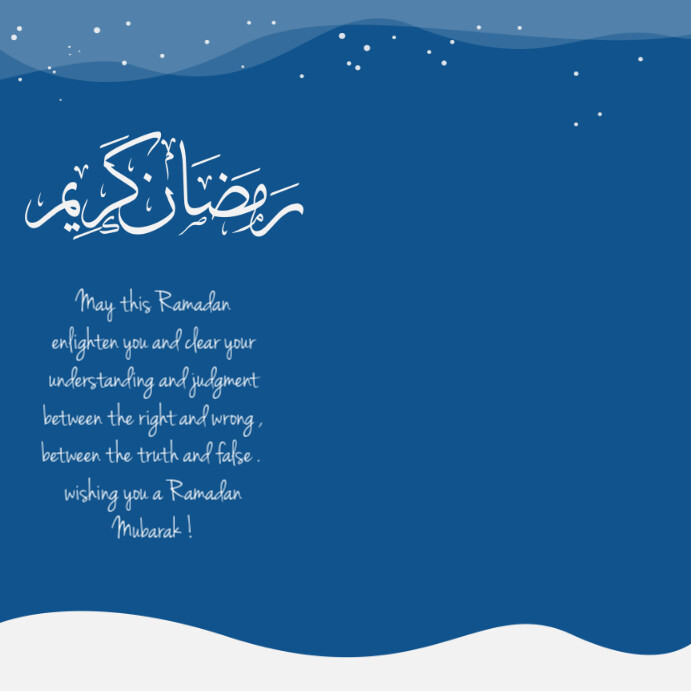 رَمَضَان كَرِيم
May this Ramadan
enlighten you and clear your
understanding and judgment
between the right and wrong ,
between the truth and false .
wishing you a Ramadan
Mubarak !